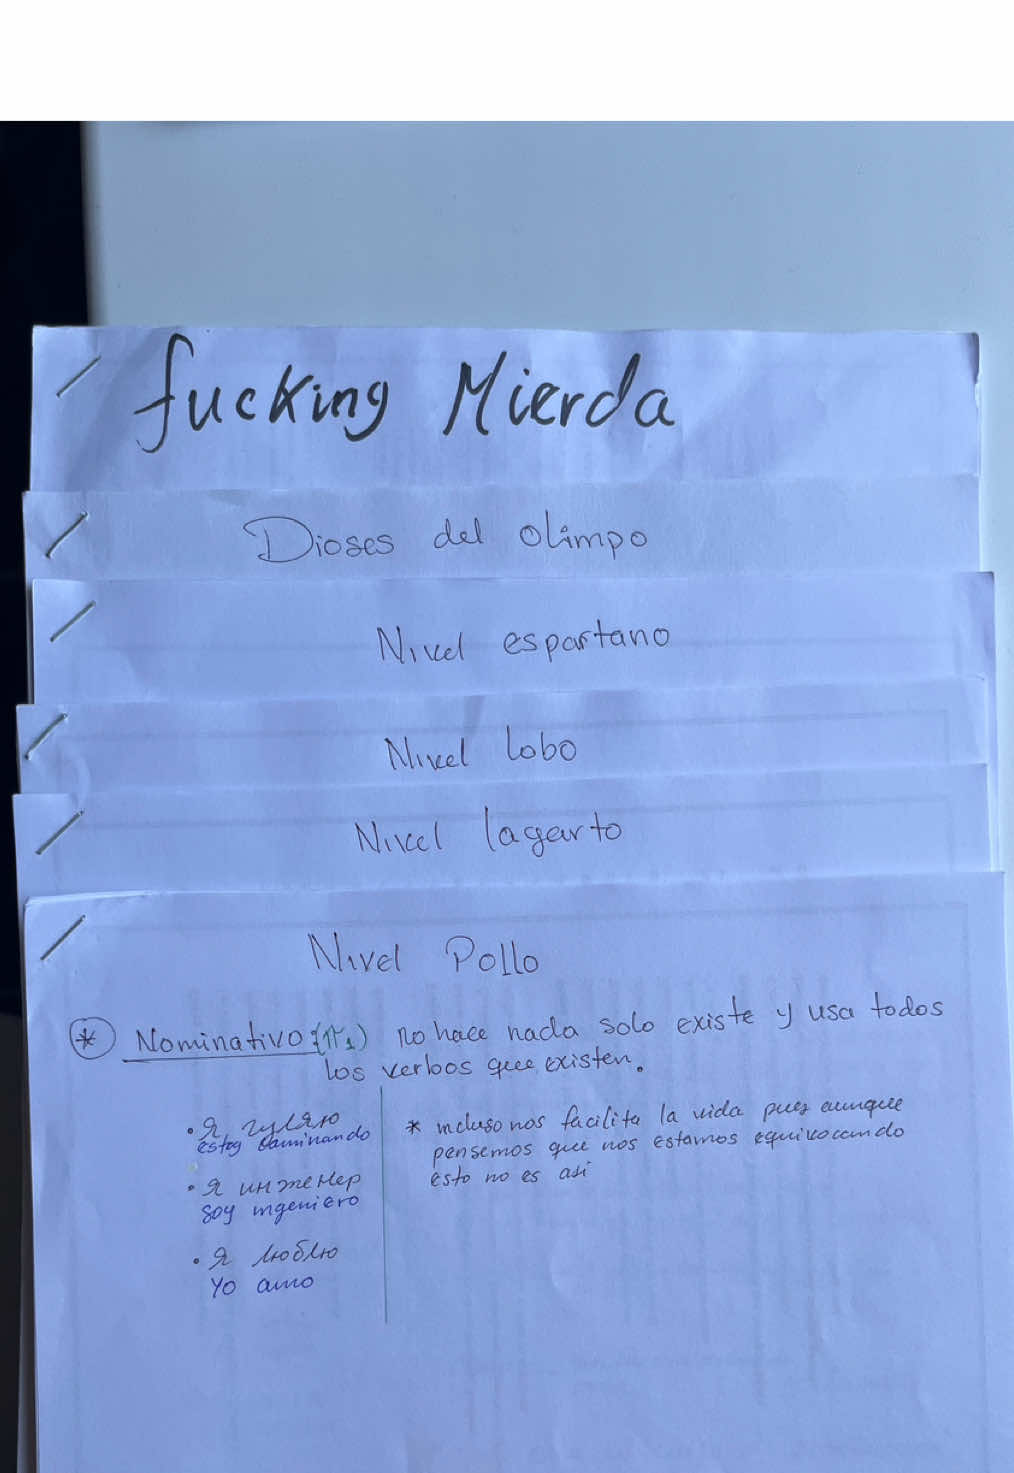 fucking Mierda
Dioses del olimpo
Nivel espartano
Nivel lobo
Nivel lagarto
Nivel Pollo
* Nominativo: (П1) no hace nada solo existe y usa todos
los verbos que existen.
• Я гуляю
estoy caminando
• Я инженер
soy ingeniero
• Я люблю
Yo amo
* incluso nos facilita la vida pues aunque
pensemos que nos estamos equivocando
esto no es asi